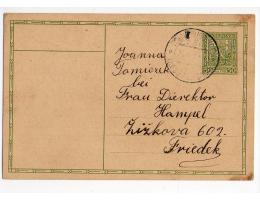 Joanna
Tomiczek
bei
Frau Direktor
Hampel
Žižkova 602.
Friedek